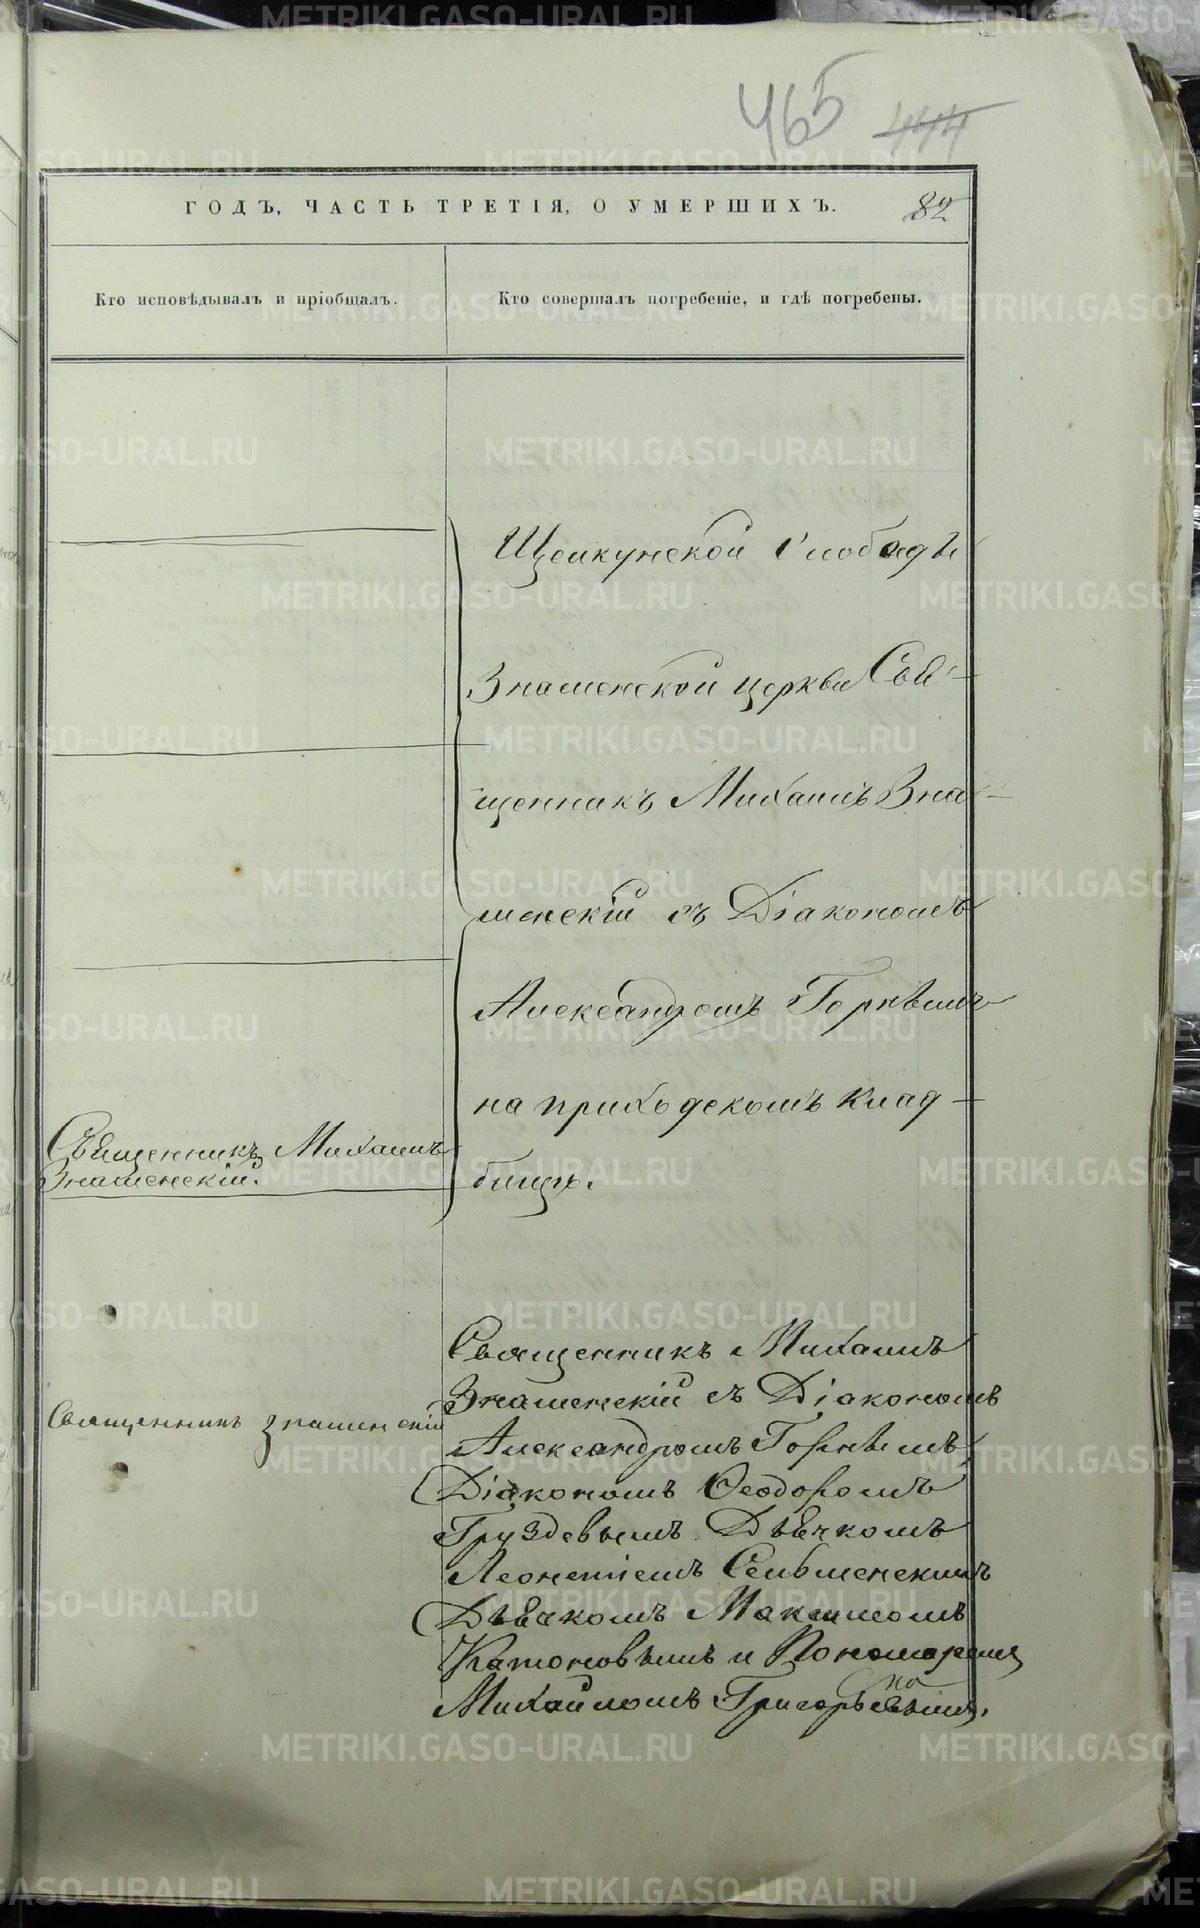 465 444
ГОДЪ, ЧАСТЬ ТРЕТІЯ, О УМЕРШИХЪ. 82
Кто исповѣдывалъ и пріобщалъ.
Кто совершалъ погребеніе, и гдѣ погребены.
Щелкунской Слободы
Знаменской церкви Свя-
щенникъ Михаилъ Зна-
менскій съ Діакономъ
Александромъ Горнымъ
на приходскомъ клад-
бищѣ.
Священникъ Михаилъ
Знаменскій.
Священникъ Знаменскій
Священникъ Михаилъ
Знаменскій съ Діакономъ
Александромъ Горнымъ,
Діакономъ Ѳеодоромъ
Груздевымъ Дьячкомъ
Леонтіемъ Сельменскимъ
Дьячкомъ Максимомъ
Катоновымъ и Пономаремъ
Михаиломъ Григорьевымъ.
METRIKI.GASO-URAL.RU